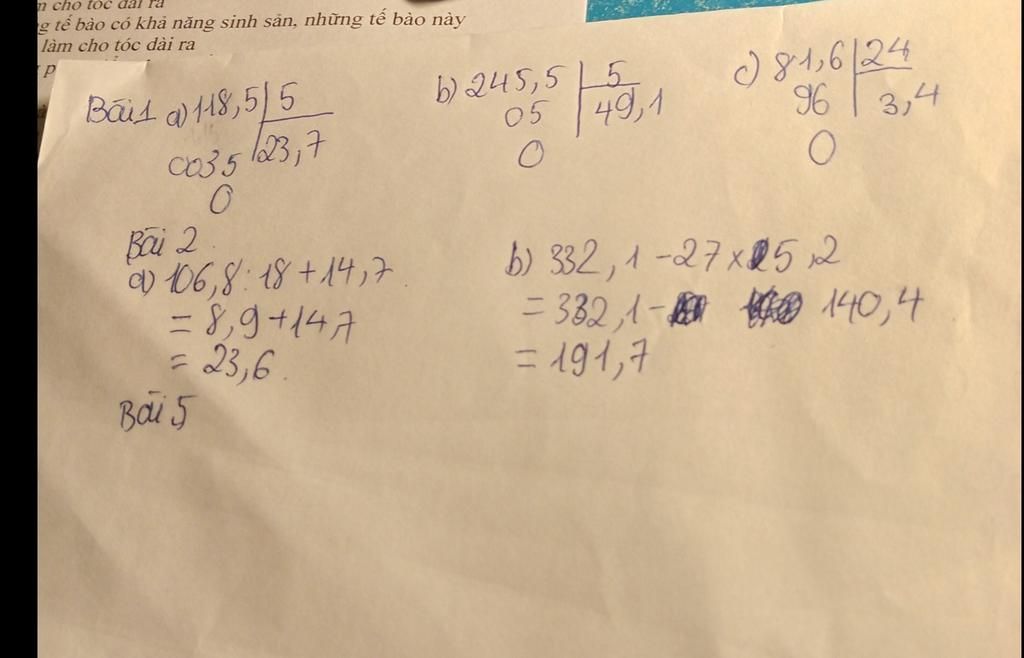 m cho tóc dài ra
g tế bào có khả năng sinh sản, những tế bào này
làm cho tóc dài ra
p
Bài 1 a) 118,5 5
0035 23,7
0
b) 245,5 5
05 49,1
0
c) 81,6 24
96 3,4
0
Bài 2
a) 106,8 : 18 + 14,7
= 8,9 + 14,7
= 23,6
b) 332,1 - 27 x 5,2
= 332,1 - 140,4
= 191,7
Bài 5